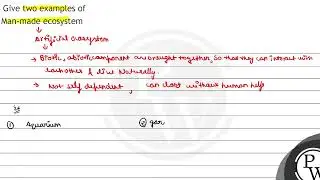 Give two examples of
Man-made ecosystem
Artificial ecosystem
→ Biotic, abiotic component are brought together, so that they can interact with
each other & live Naturally.
→ Not self dependent, can
without human help
① Aquarium ② gar
PW